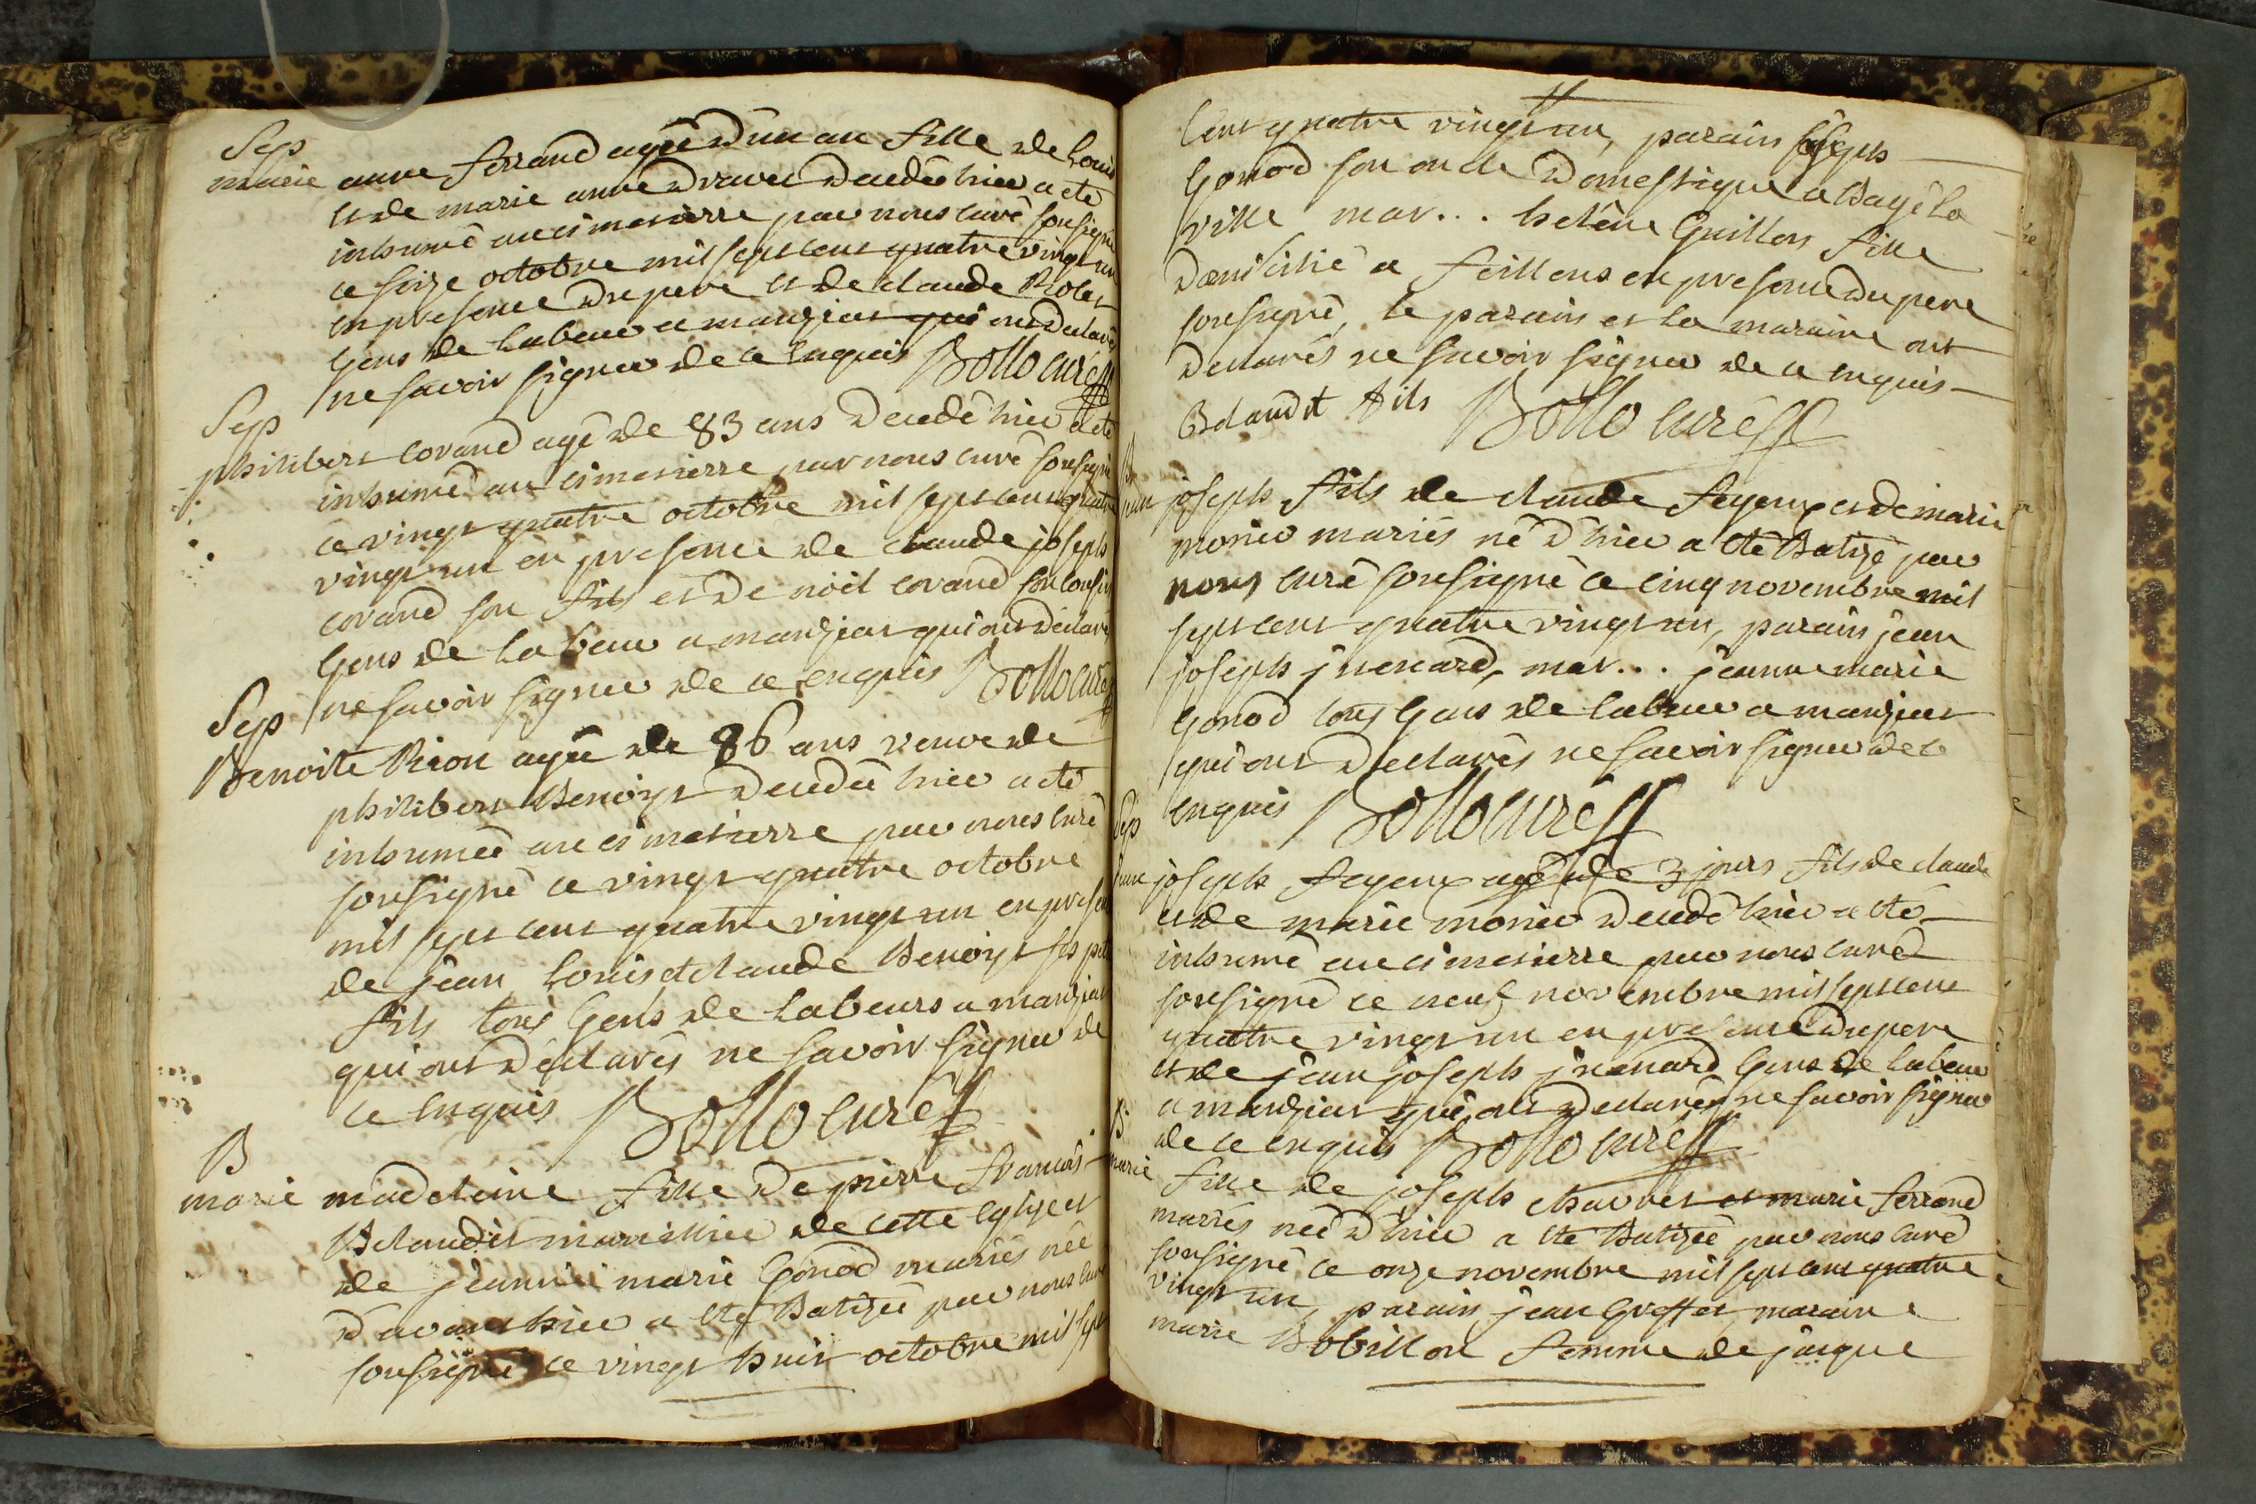 Sep
marie anne ferrand agée d'un an fille de Louis
et de marie anne dravet decedée hier a été
inhumé au cimetierre par nous curé sousigné
ce seize octobre mil sept cent quatre vingt un
en presence du pere et de claude Rolet
Gens de labeur a manziat qui ont declarés
ne savoir signer de ce enquis Bollo curé
Sep
philibert corand agé de 83 ans decedé hier a été
inhumé au cimetierre par nous curé sousigné
ce vingt quatre octobre mil sept cent quatre
vingt un en presence de claude joseph
corand son fils et de noël corand son cousin
Gens de labeur a manziat qui ont declaré
ne savoir signer de ce enquis Bollo curé
Sep
Benoite Rion agée de 86 ans veuve de
philibert Benoist decedée hier a été
inhumée au cimetierre par nous curé
sousigné ce vingt quatre octobre
mil sept cent quatre vingt un en presen
de jean Louis et claude Benoist ses petit
fils tous Gens de labeurs a manziat
qui ont declarés ne savoir signer de
ce enquis Bollo curé
B
marie madeleine fille de pierre francois
Blaudit marillier de cette eglise et
de jeanne marie Gonod mariés née
d'avanthier a été Batizée par nous curé
sousigné ce vingt huit octobre mil sept
cent quatre vingt un, parain joseph
Gonod son oncle domestique a Bagé la
ville mar... helène Guillon fille
domicilié a feillens en presence du pere
sousigné, le parain et la maraine ont
declarés ne savoir signer de ce enquis
Blaudit fils Bollo curé
B
jean joseph fils de claude feyeux et de marie
monier mariés né d'hier a été Batizé par
nous curé sousigné ce cinq novembre mil
sept cent quatre vingt un, parain jean
joseph juenard, mar... jeanne marie
Gonod tous Gens de labeur a manziat
qui ont declarés ne savoir signer de ce
enquis Bollo curé
Sep
jean joseph feyeux agé de 3 jours fils de claude
et de marie monier decedé hier a été
inhumé au cimetierre par nous curé
sousigné ce neuf novembre mil sept cent
quatre vingt un en presence du pere
et de jean joseph juenard Gens de labeur
a manziat qui ont declarés ne savoir signer
de ce enquis Bollo curé
B
marie fille de joseph chavvet et marie ferrand
mariés née d'hier a été Batizée par nous curé
sousigné ce onze novembre mil sept cent quatre
vingt un, parain jean Greffet, maraine
marie Bobillon femme de jaique